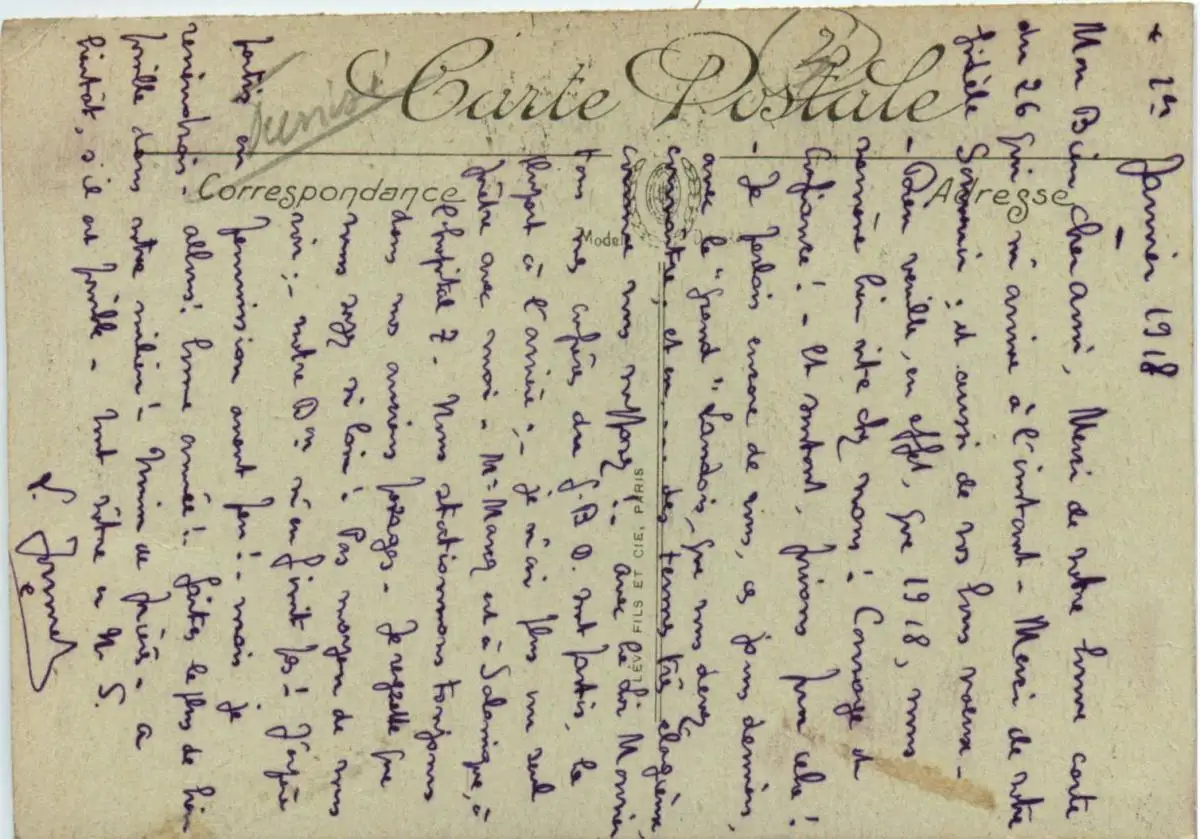 Carte Postale
Correspondance
Adresse
LÉVY FILS ET CIE, PARIS
+ 1er Janvier 1918
Mon Bien cher ami, Merci de votre bonne carte
du 26 qui m'arrive à l'instant - Merci de votre
fidèle Souvenir : et aussi de vos bons voeux -
- Dieu veuille, en effet, que 1918, nous
ramène bien vite chez nous ! Courage et
Confiance ! - Et surtout, prions pour cela !
- Je parlais encore de vous, ces jours derniers,
avec le "grand" Landois, que vous devez
connaître, et en .... des termes très
comme vous supposez ! -
tous nos confrères du G.B.D. sont partis, la
plupart à l'arrière : - je n'ai plus un seul
prêtre avec moi - Mr est à Salonique, à
l'hôpital 7. Nous stationnons toujours
dans nos anciens parages - Je regrette que
vous soyez si loin ! Pas moyen de nous
voir : - notre Don n'en finit pas ! J'espère
partir en permission avant peu ! - mais je
allons ! bonne année ! faites le plus de bien
possible dans votre milieu ! - Union de prières - à
bientôt, s'il est possible - Tout vôtre en N. S.